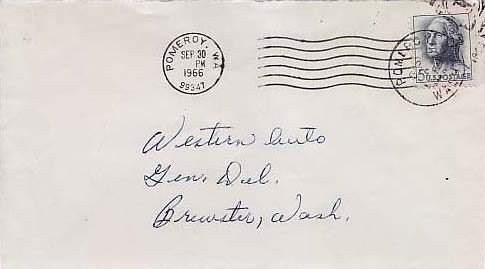 POMEROY, WA
SEP 30
PM
1966
99347
5¢ U.S. POSTAGE
Western Auto
Gen. Del.
Brewster, Wash.